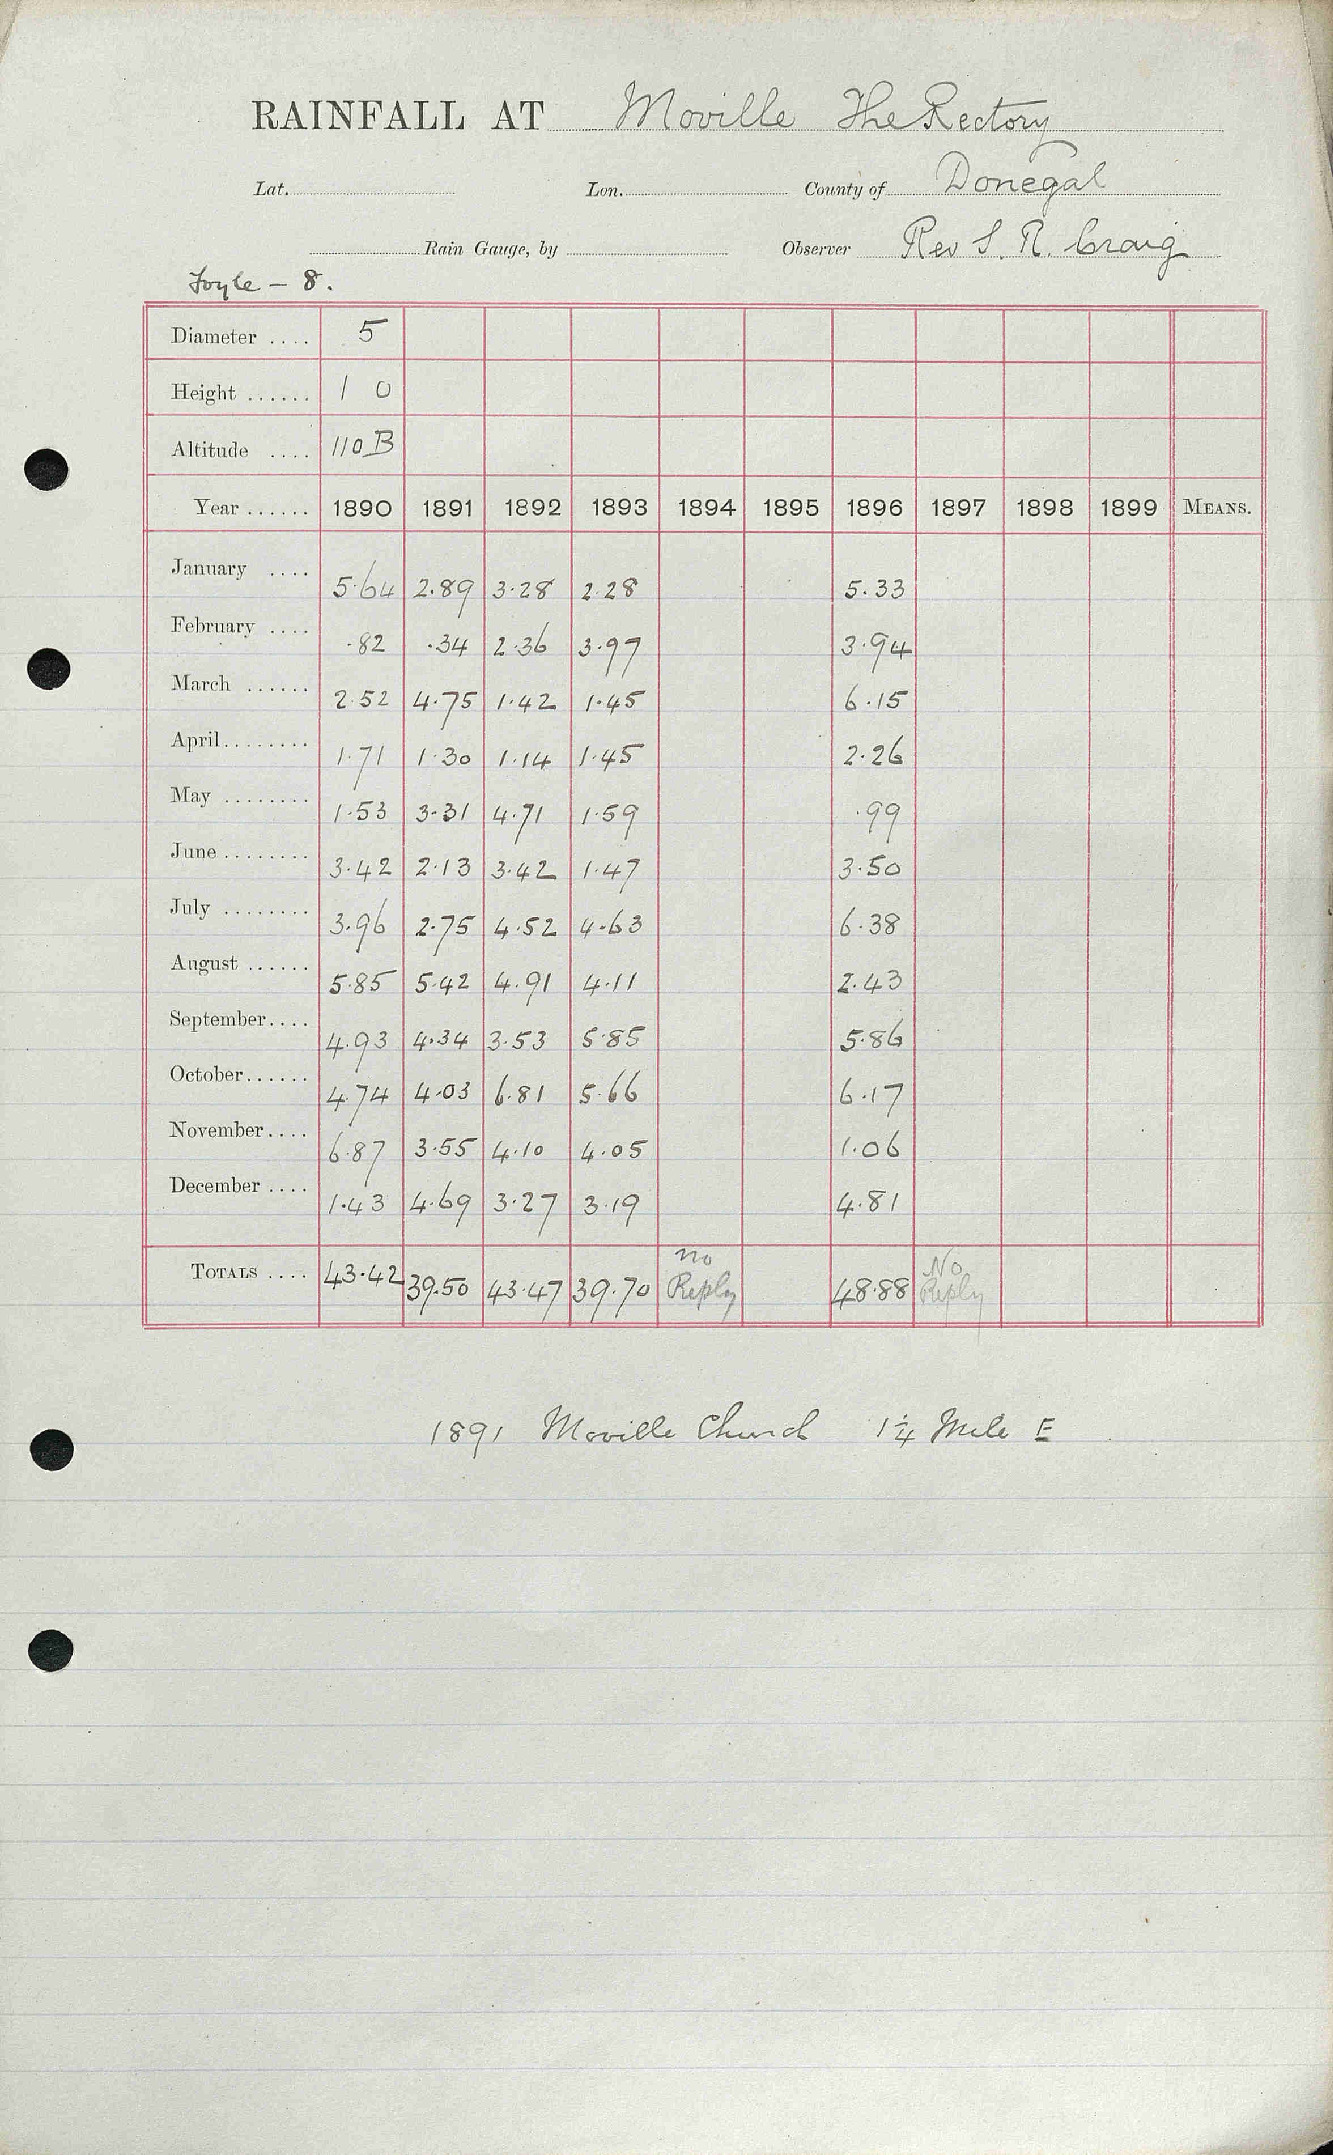 RAINFALL AT Moville The Rectory
Lat. Lon. County of Donegal
Rain Gauge, by Observer Rev S. R. Craig
Foyle - 8.
Diameter .... 5
Height ...... 1 0
Altitude .... 110 B
Year ...... 1890 1891 1892 1893 1894 1895 1896 1897 1898 1899 MEANS.
January .... 5.64 2.89 3.28 2.28 5.33
February .... .82 .34 2.36 3.97 3.94
March ...... 2.52 4.75 1.42 1.45 6.15
April ........ 1.71 1.30 1.14 1.45 2.26
May ........ 1.53 3.31 4.71 1.59 .99
June ........ 3.42 2.13 3.42 1.47 3.50
July ........ 3.96 2.75 4.52 4.63 6.38
August ...... 5.85 5.42 4.91 4.11 2.43
September.... 4.93 4.34 3.53 5.85 5.86
October...... 4.74 4.03 6.81 5.66 6.17
November.... 6.87 3.55 4.10 4.05 1.06
December .... 1.43 4.69 3.27 3.19 4.81
TOTALS .... 43.42 39.50 43.47 39.70 no Reply 48.88 No Reply
1891 Moville Church 1 1/4 Mile E